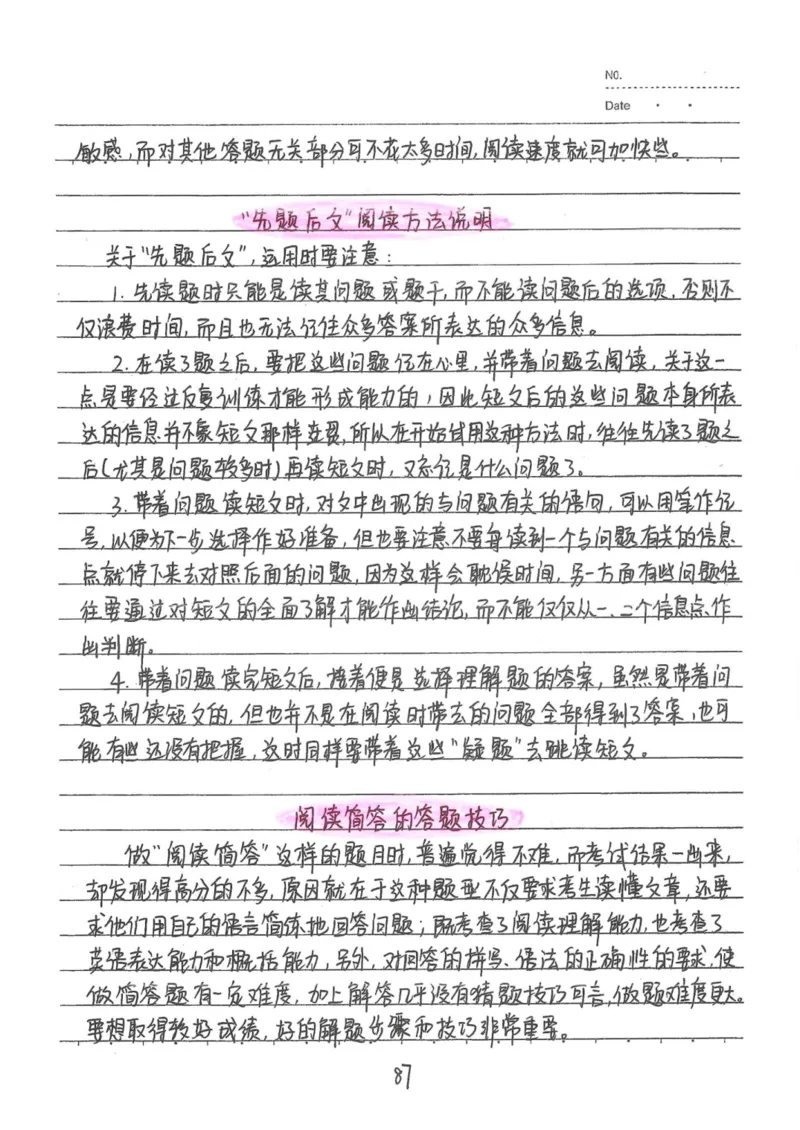 No.
Date
敏感，而对其他答题无关部分可不花太多时间，阅读速度就可加快些。
“先题后文”阅读方法说明
关于“先题后文”，运用时要注意：
1. 先读题时只能是读其问题或题干，而不能读问题后的选项，否则不
仅浪费时间，而且也无法记住众多答案所表达的众多信息。
2. 在读了题之后，要把这些问题记在心里，并带着问题去阅读，关于这一
点是要经过反复训练才能形成能力的，因此短文后的这些问题本身所表
达的信息并不象短文那样连贯，所以在开始试用这种方法时，往往先读了题之
后（尤其是问题较多时）再读短文时，又忘记是什么问题了。
3. 带着问题读短文时，对文中出现的与问题有关的语句，可以用笔作记
号，以便为下一步选择作好准备，但也要注意不要每读到一个与问题有关的信息
点就停下来去对照后面的问题，因为这样会耽误时间，另一方面有些问题往
往要通过对短文的全面了解才能作出结论，而不能仅仅从一、二个信息点作
出判断。
4. 带着问题读完短文后，接着便是选择理解题的答案，虽然是带着问
题去阅读短文的，但也并不是在阅读时带去的问题全部得到了答案，也可
能有些还没有把握，这时同样要带着这些“疑题”去跳读短文。
阅读简答的答题技巧
做“阅读简答”这样的题目时，普遍觉得不难，而考试结果一出来，
却发现得高分的不多，原因就在于这种题型不仅要求考生读懂文章，还要
求他们用自己的语言简练地回答问题；既考查了阅读理解能力，也考查了
英语表达能力和概括能力，另外，对回答的拼写、语法的正确性的要求，使
做简答题有一定难度，加上解答几乎没有猜题技巧可言，做题难度更大。
要想取得较好成绩，好的解题步骤和技巧非常重要。
87